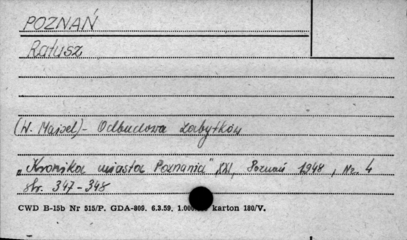 POZNAŃ
Ratusz
(W. Maisel) - Odbudowa zabytków
"Kronika miasta Poznania" XXI, Poznań 1948, Nr. 4
str. 347-348
CWD B-15b Nr 515/P. GDA-809. 6.3.59. 1.000 karton 180/V.